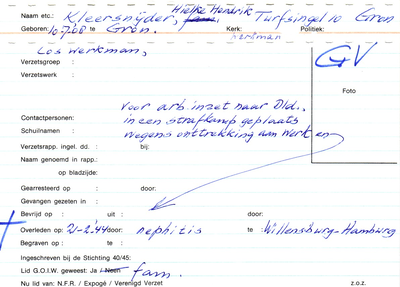 Naam etc.: Kleersnijder, Hielke Hendrik Turfsingel 10 Gron
Geboren: 10-7.08 te Gron. Kerk: Politiek:
Los werkman, kerkman
Verzetsgroep :
Verzetswerk :
GV
Foto
voor arb. inzet naar Dld.,
in een strafkamp geplaats
Contactpersonen:
wegens onttrekking aan werk en
Schuilnamen :
Verzetsrapp. ingel. dd. : bij:
Naam genoemd in rapp.:
op bladzijde:
Gearresteerd op : door:
Gevangen gezeten in :
Bevrijd op : uit : door:
Overleden op : 21-2.'44 door: nephitis te : Willensburg-Hamburg
Begraven op : te :
Ingeschreven bij de Stichting 40/45:
Lid G.O.I.W. geweest: Ja Neen fam.
Nu lid van: N.F.R. / Expogé / Verenigd Verzet z.o.z.